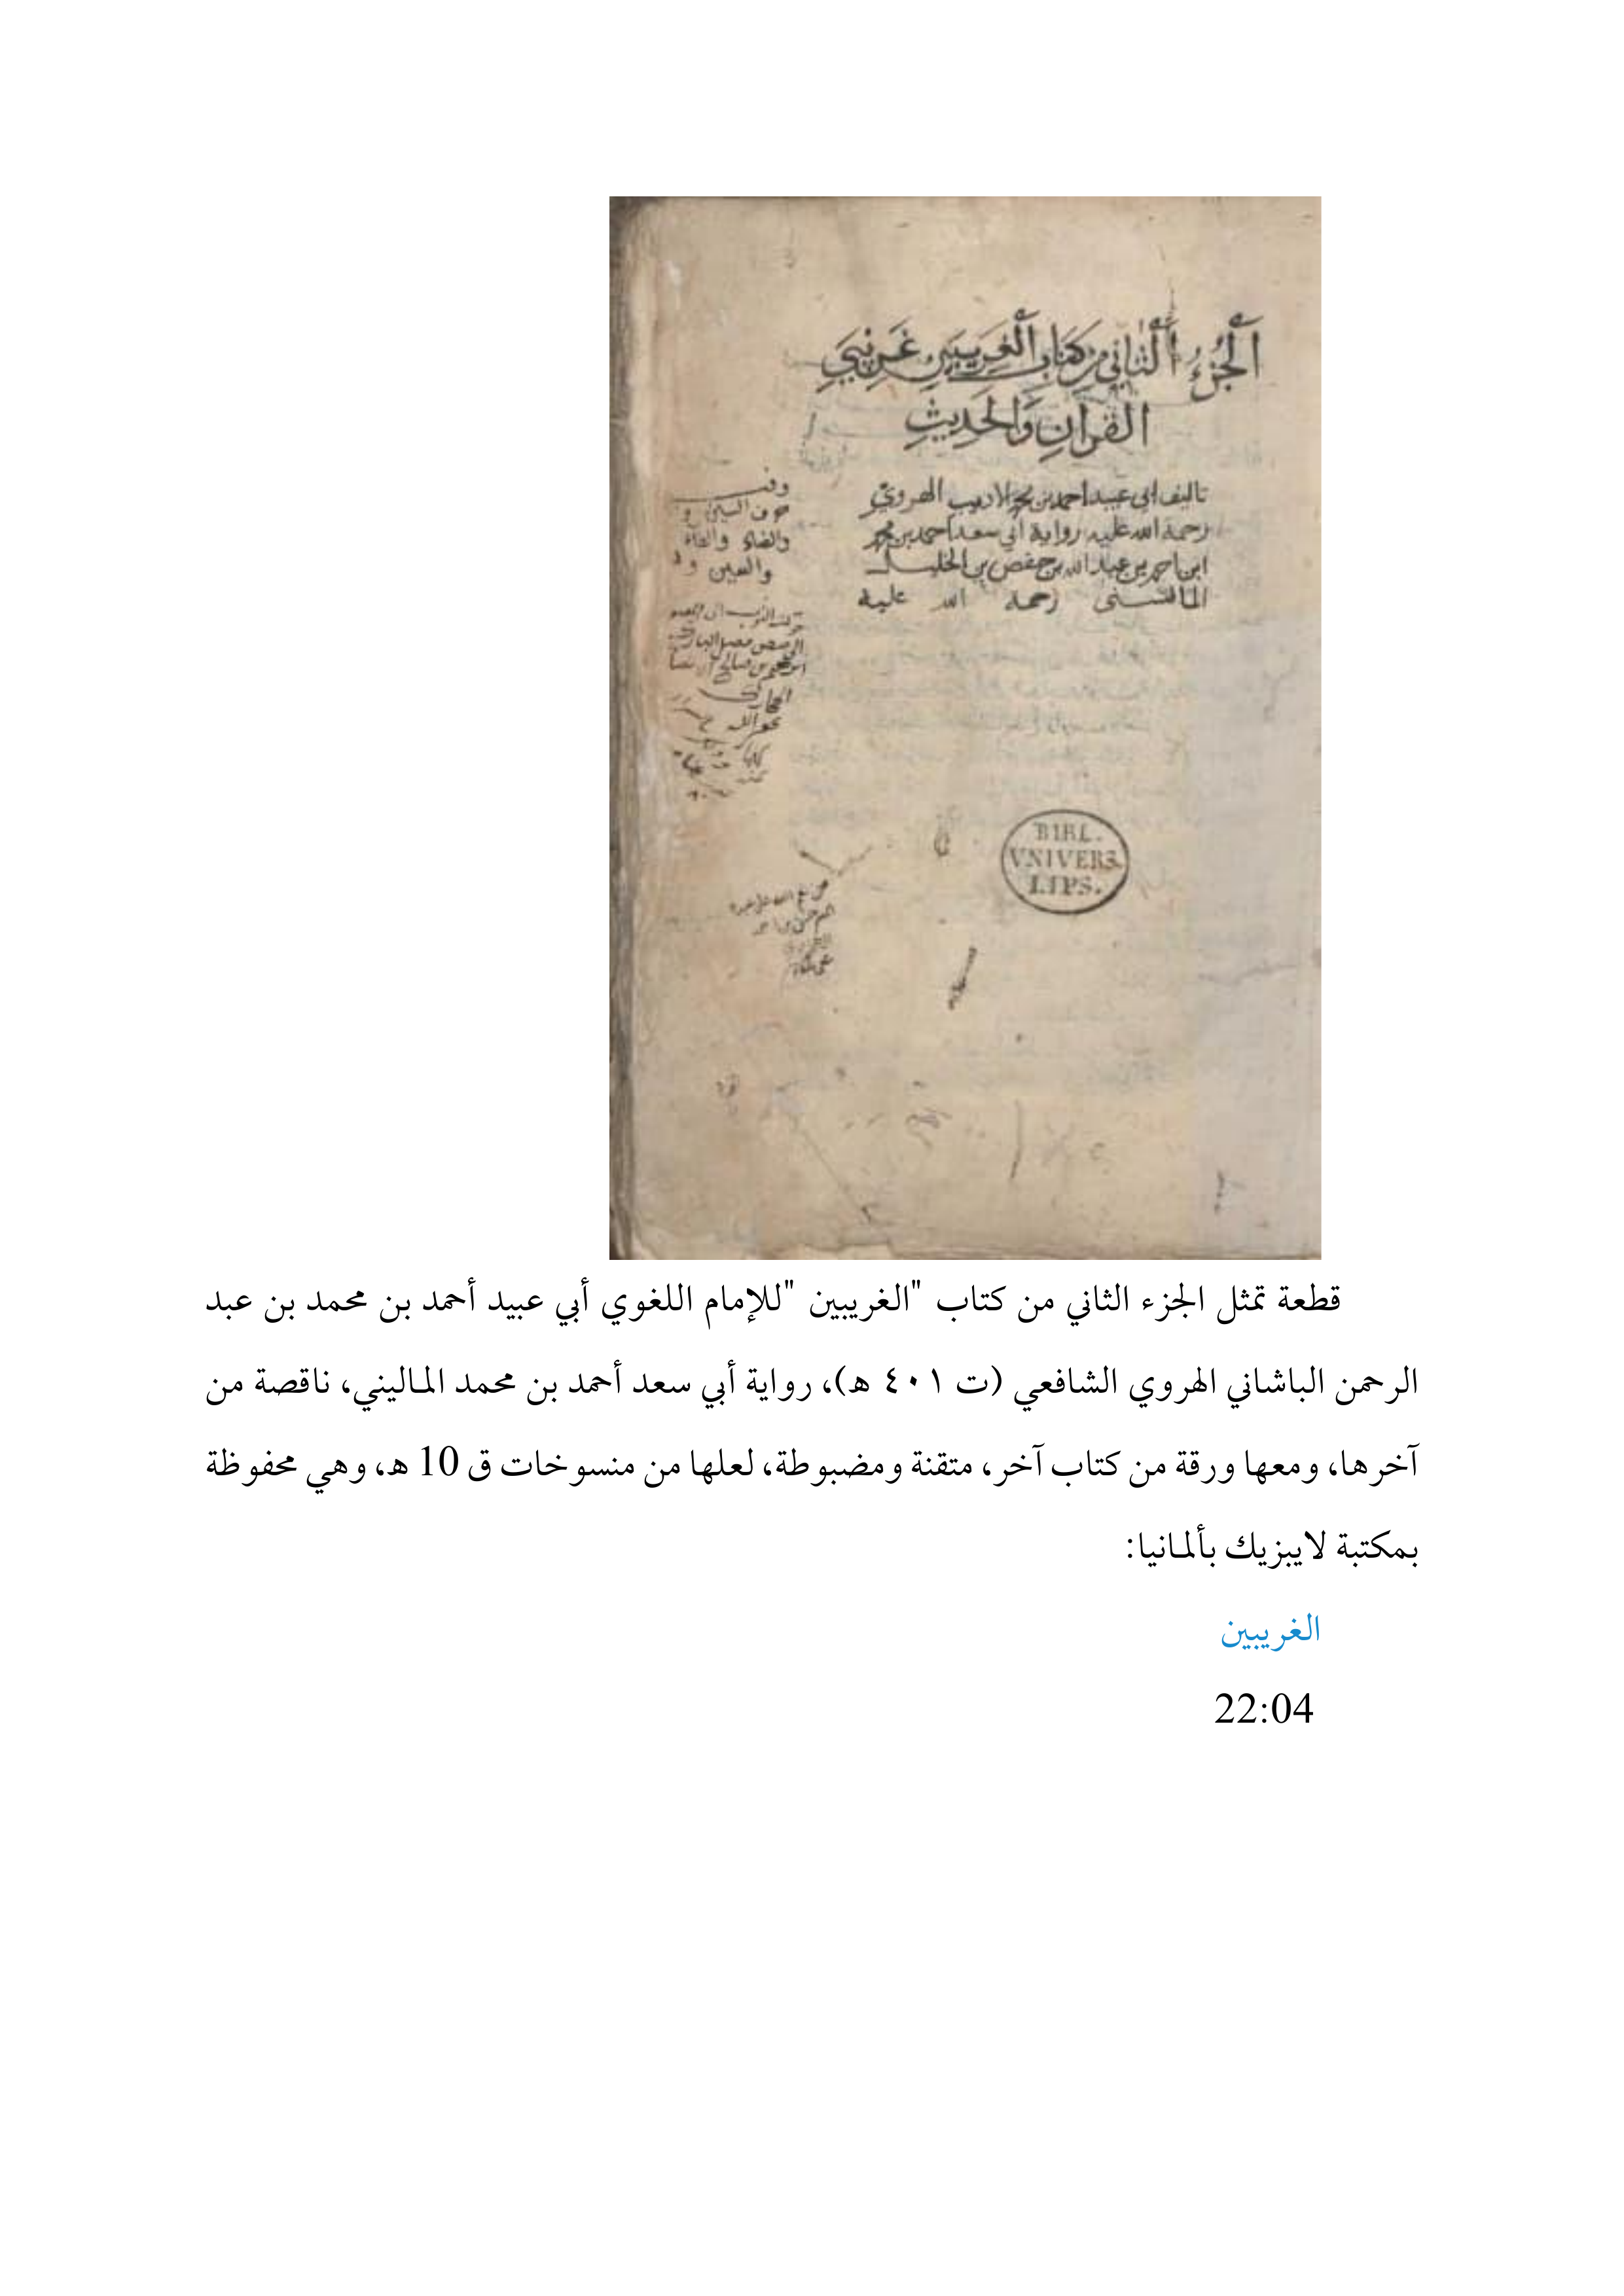 الجُزءُ الثَّاني مِن كتاب الغَرِيبَينِ غَرِيبَيِ
القُرآنِ وَالحَدِيثِ
تاليف ابى عبيد احمد بن محمد الاديب الهروي
رحمة الله عليه رواية ابي سعد احمد بن محمد
ابن احمد بن عبد الله بن حفص بن الخليل
الماليني رحمة الله عليه
وفيه
حرف السين و
والضاد والطاء
والعين و
BIBL.
VNIVERS.
LIPS.
قطعة تمثل الجزء الثاني من كتاب "الغريبين "للإمام اللغوي أبي عبيد أحمد بن محمد بن عبد
الرحمن الباشاني الهروي الشافعي (ت ٤٠١ هـ)، رواية أبي سعد أحمد بن محمد الماليني، ناقصة من
آخرها، ومعها ورقة من كتاب آخر، متقنة ومضبوطة، لعلها من منسوخات ق 10 هـ، وهي محفوظة
بمكتبة لايبزيك بألمانيا:
الغريبين
22:04